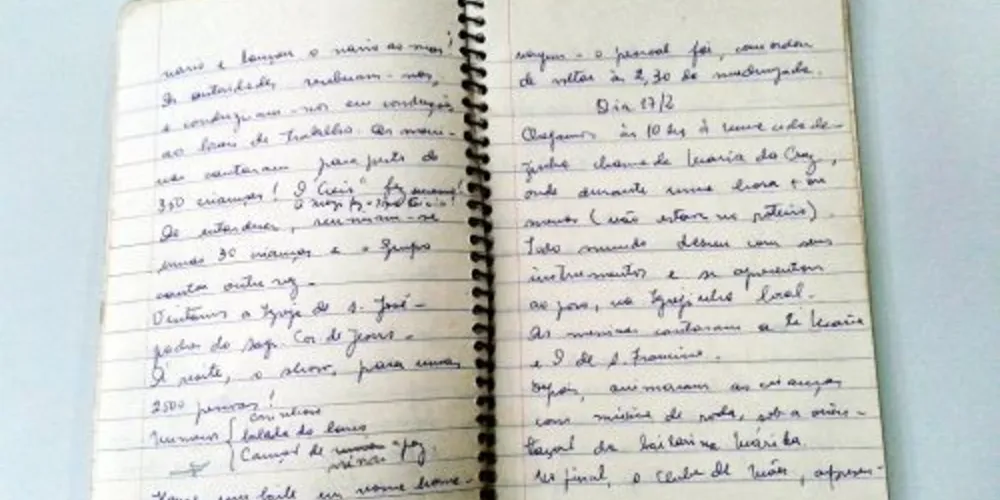 navio e lançou o navio ao mar!
As autoridades receberam-nos,
e conduziram-nos em condução
ao locais de trabalho. As meni-
nas cantaram para perto de
350 crianças!
Ao entardecer, reuniram-se
umas 30 crianças e o Grupo
cantou outra vez.
Visitamos a Igreja de S. José -
padres do Sagr. Cor. de Jesus.
À noite, o show, para umas
2500 pessoas!
Números
balada do louco
Canção de paz
Houve um baile em nossa home-
viagem - o pessoal foi, concordou
de voltar às 2,30 da madrugada.
Dia 17/2
Chegamos às 10 hs à uma cidade-
zinha chamada Maria da Cruz,
onde durante uma hora + ou
menos (não estava no roteiro).
Todo mundo desceu com seus
instrumentos e se apresentou
ao povo, na Igrejinha local.
As meninas cantaram a
e O de S. Francisco.
Depois, animaram as crianças
com música de roda, sob a orien-
tação da bailarina Marika.
No final, o Clube de Mães, apresen-